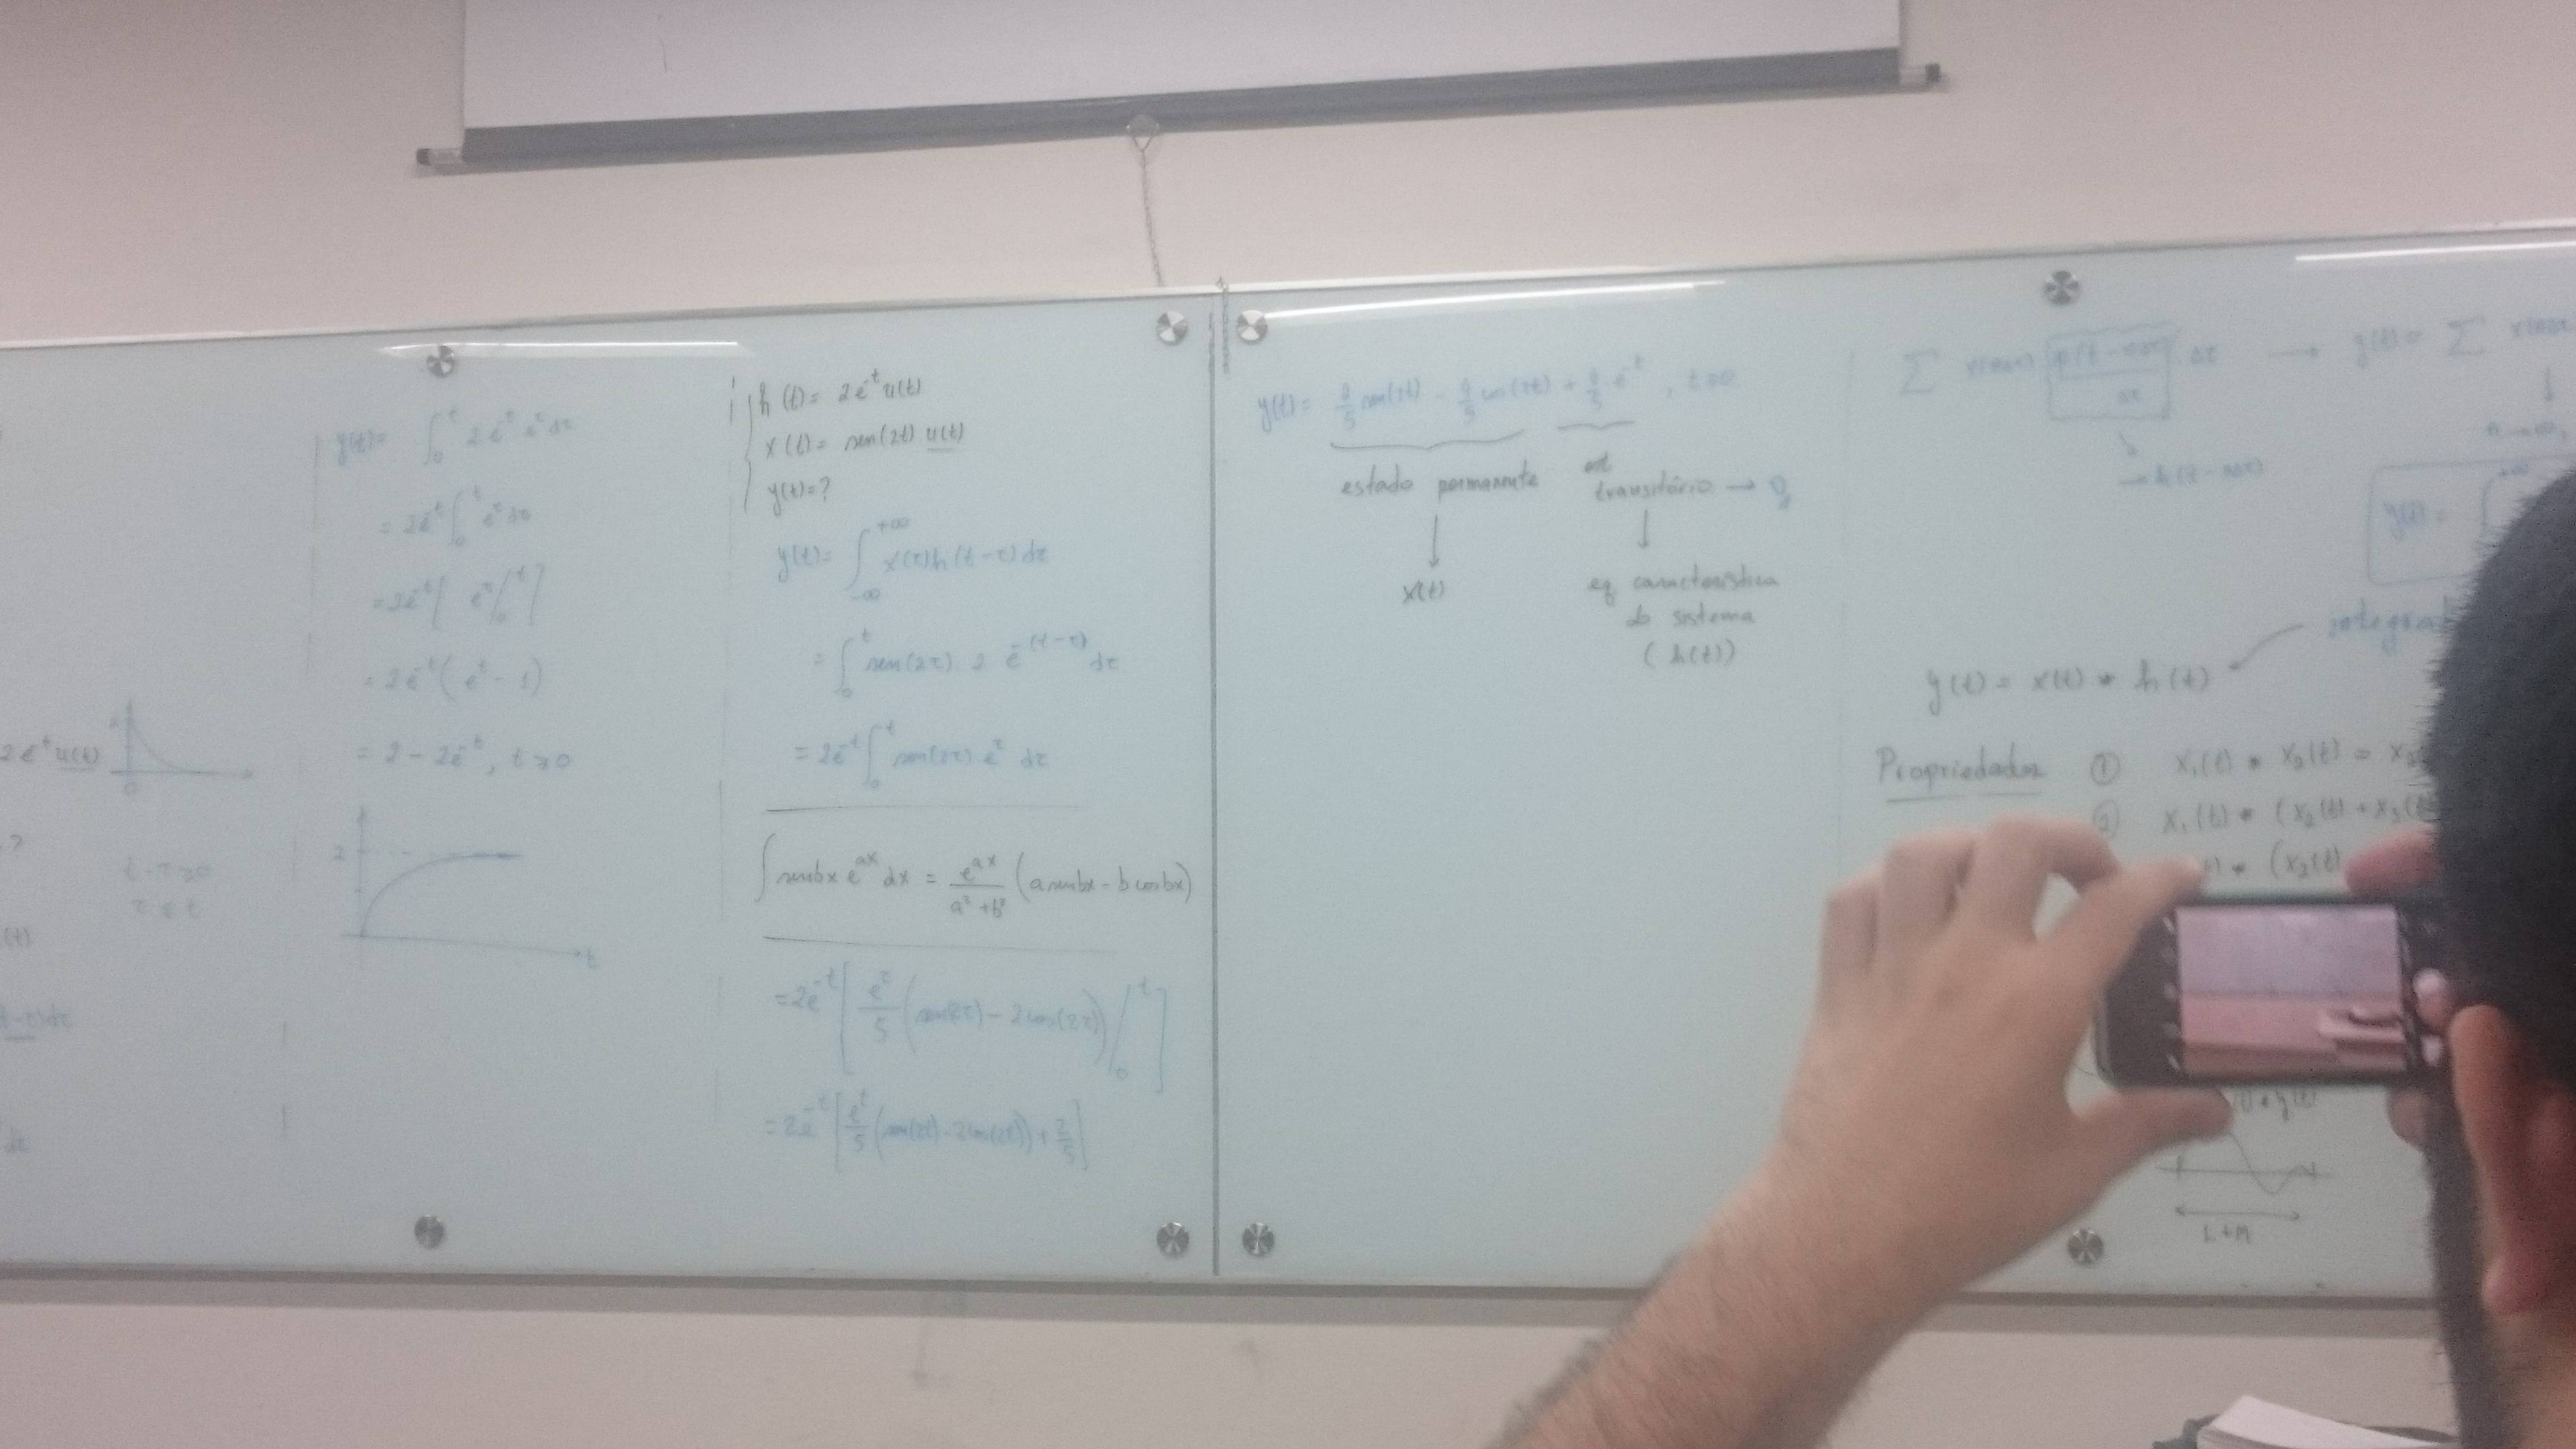 2e^-t u(t)
0
?
t-τ≥0
τ≤t
(t)
t-τ)dτ
dτ
y(t)= ∫_0^t 2e^-t e^τ dτ
= 2e^-t ∫_0^t e^τ dτ
= 2e^-t [ e^τ |_0^t ]
= 2e^-t (e^t - 1)
= 2 - 2e^-t, t≥0
2
t
h(t)= 2e^-t u(t)
x(t)= sen(2t) u(t)
y(t)=?
y(t)= ∫_-∞^+∞ x(τ)h(t-τ)dτ
= ∫_0^t sen(2τ) 2 e^-(t-τ) dτ
= 2e^-t ∫_0^t sen(2τ) e^τ dτ
∫ senbx e^ax dx = e^ax/(a²+b²) (a senbx - b cosbx)
= 2e^-t [ e^τ/5 (sen(2τ) - 2cos(2τ)) |_0^t ]
= 2e^-t [ e^t/5 (sen(2t) - 2cos(2t)) + 2/5 ]
y(t)= 2/5 sen(2t) - 4/5 cos(2t) + 4/5 e^-t, t≥0
estado permanente
est
transitório →
x(t)
eq característica
do sistema
(h(t))
∑ Δτ → y(t)= ∑
→ h(t-nΔτ)
y(t)= ∫^+∞
y(t) = x(t) * h(t)
Propriedades ① x₁(t) * x₂(t) = x₂
② x₁(t) * (x₂(t) + x₃(t
* (x₂(t)
L+M